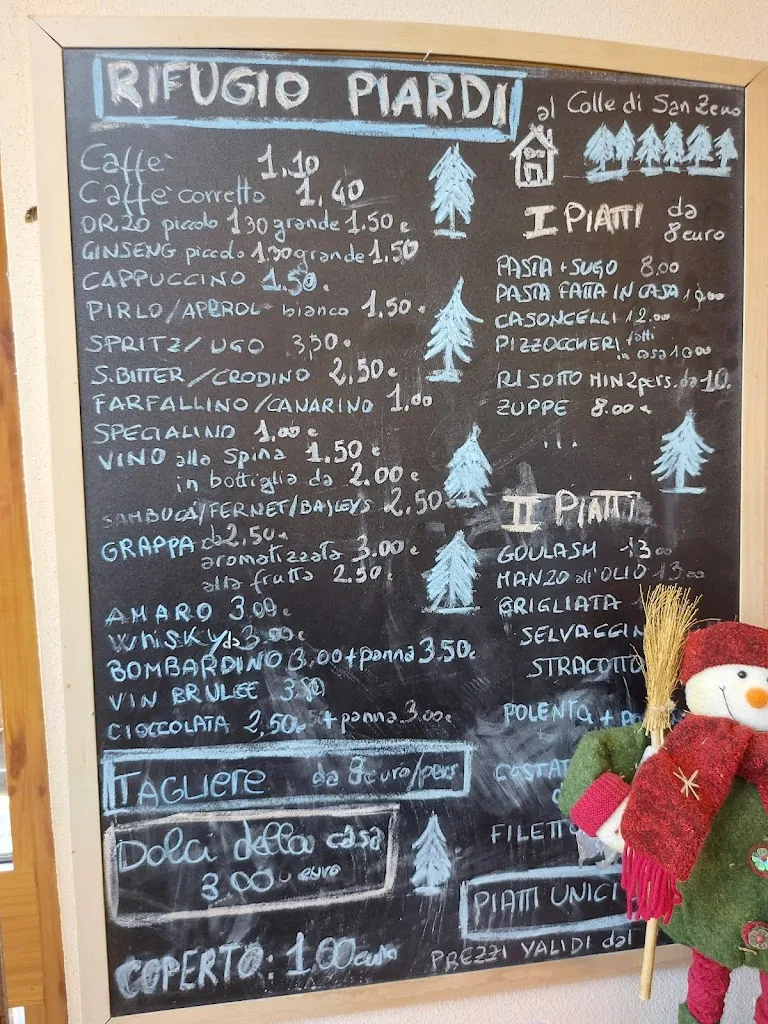 RIFUGIO PIARDI
al Colle di San Zeno
Caffè 1,10
Caffè corretto 1,40
ORZO piccolo 1,30 grande 1,50 €
GINSENG piccolo 1,30 grande 1,50
CAPPUCCINO 1,50.
PIRLO/APEROL bianco 1,50 €
SPRITZ/UGO 3,50.
S.BITTER/CRODINO 2,50 €
FARFALLINO/CANARINO 1,00
SPECIALINO 1,00 €
VINO alla spina 1.50 €
in bottiglia da 2.00 €
SAMBUCA/FERNET/BAYLEYS 2,50
GRAPPA da 2,50 €
aromatizzata 3.00 €
alla frutta 2.50 €
AMARO 3.00 €
WHISKY da 3.00 €
BOMBARDINO 3.00 + panna 3.50 €
VIN BRULEE
CIOCCOLATA 2,50 € + panna 3.00 €
TAGLIERE da 8 euro/pers
Dolci della casa
3.00 euro
COPERTO: 1,00 euro
I PIATTI da
8 euro
PASTA + SUGO 8,00
PASTA FATTA IN CASA
CASONCELLI 12.00
PIZZOCCHERI fatti
in casa 10.00
RISOTTO MIN 2 pers. da 10.
ZUPPE 8.00 €
...
II PIATTI
GOULASH 13.00
MANZO all'OLIO 13.00
GRIGLIATA
SELVAGGIN
STRACOTTO
POLENTA +
COSTAT
FILETTO
PIATTI UNICI
PREZZI VALIDI dal